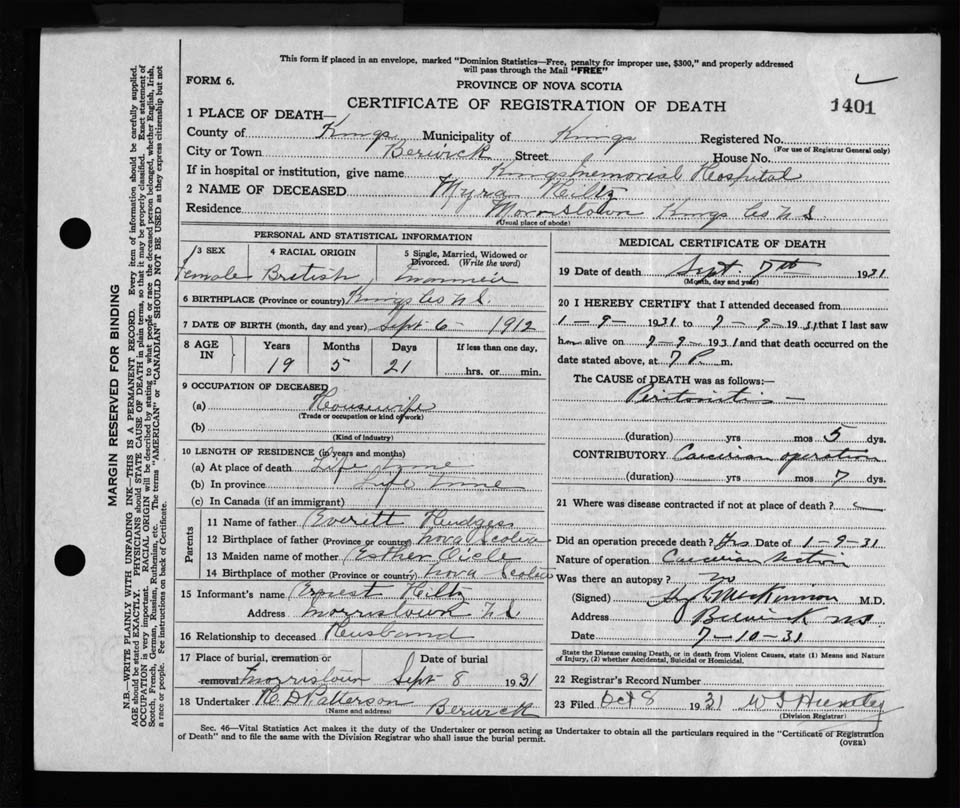 This form if placed in an envelope, marked "Dominion Statistics—Free, penalty for improper use, $300," and properly addressed
will pass through the Mail "FREE"
FORM 6.
PROVINCE OF NOVA SCOTIA
CERTIFICATE OF REGISTRATION OF DEATH
1401
1 PLACE OF DEATH—
County of Kings Municipality of Kings Registered No.
(For use of Registrar General only)
City or Town Berwick Street House No.
If in hospital or institution, give name Kings Memorial Hospital
2 NAME OF DECEASED Myra Hiltz
Residence Morristown Kings Co N.S.
(Usual place of abode)
PERSONAL AND STATISTICAL INFORMATION
3 SEX 4 RACIAL ORIGIN 5 Single, Married, Widowed or Divorced. (Write the word)
Female British Married
6 BIRTHPLACE (Province or country) Kings Co N.S.
7 DATE OF BIRTH (month, day and year) Sept 6 1912
8 AGE IN Years Months Days If less than one day,
19 5 21 hrs. or min.
9 OCCUPATION OF DECEASED
(a) Housewife
(Trade or occupation or kind of work)
(b)
(Kind of industry)
10 LENGTH OF RESIDENCE (in years and months)
(a) At place of death Life time
(b) In province Life time
(c) In Canada (if an immigrant)
Parents
11 Name of father Everett
12 Birthplace of father (Province or country) Nova Scotia
13 Maiden name of mother Esther
14 Birthplace of mother (Province or country) Nova Scotia
15 Informant's name Ernest Hiltz
Address Morristown N.S.
16 Relationship to deceased Husband
17 Place of burial, cremation or removal Morristown Date of burial Sept 8 1931
18 Undertaker Patterson Berwick
(Name and address)
MEDICAL CERTIFICATE OF DEATH
19 Date of death Sept. 7th 1931
(Month, day and year)
20 I HEREBY CERTIFY that I attended deceased from
1-9-1931 to 7-9-1931 that I last saw
her alive on 7-9-1931 and that death occurred on
date stated above, at 7 P. m.
The CAUSE of DEATH was as follows:—
Peritonitis —
(duration) yrs mos 5 dys.
CONTRIBUTORY operation
(duration) yrs mos 7 dys.
21 Where was disease contracted if not at place of death?
Did an operation precede death? Yes Date of 1-9-31
Nature of operation
Was there an autopsy? no
(Signed) McKinnon M.D.
Address Berwick NS.
Date 7-10-31
State the Disease causing Death, or in death from Violent Causes, state (1) Means and Nature
of Injury, (2) whether Accidental, Suicidal or Homicidal.
22 Registrar's Record Number
23 Filed Oct 8 1931
(Division Registrar)
Sec. 46—Vital Statistics Act makes it the duty of the Undertaker or person acting as Undertaker to obtain all the particulars required in the "Certificate of Registration
of Death" and to file the same with the Division Registrar who shall issue the burial permit.
(OVER)
MARGIN RESERVED FOR BINDING
N.B.—WRITE PLAINLY WITH UNFADING INK—THIS IS A PERMANENT RECORD. Every item of information should be carefully supplied.
AGE should be stated EXACTLY. PHYSICIANS should STATE CAUSE OF DEATH in plain terms, so that it may be properly classified. Exact statement of
OCCUPATION is very important. RACIAL ORIGIN will be described by stating to what people or race the deceased person belonged, whether English, Irish,
Scotch, French, German, Russian, Ruthenian, etc. The terms "AMERICAN" or "CANADIAN" SHOULD NOT BE USED as they express citizenship but not
a race or people. See instructions on back of Certificate.